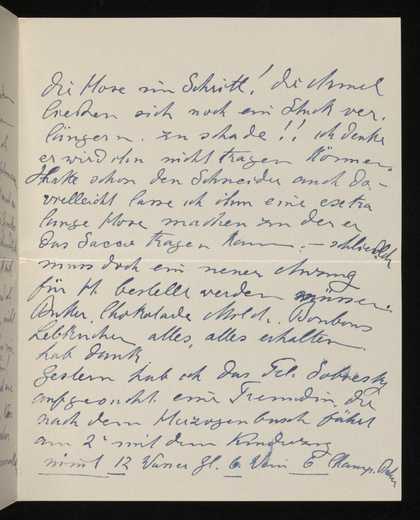 die Hose im Schritt! die Ärmel
liessen sich noch ein Stück ver-
längern. zu schade!! ich denke
er wird ihn nicht tragen können.
Hatte schon den Schneider auch da-
vielleicht lasse ich ihm eine extra
lange Hose machen zu der er
das Sacco tragen kann. – schliesslich
muss doch ein neuer Anzug
für H. bestellt werden müssen.
Zucker, Chokolade, Bonbons
Lebkuchen alles, alles erhalten.
hab Dank.
Gestern hab ich das Frl.
aufgesucht. eine Freundin, die
nach dem Herzogenbusch fährt
am 2' mit dem Kinderzug
nimmt 12 Wasser Gl. 6 Wein 6 Champ.